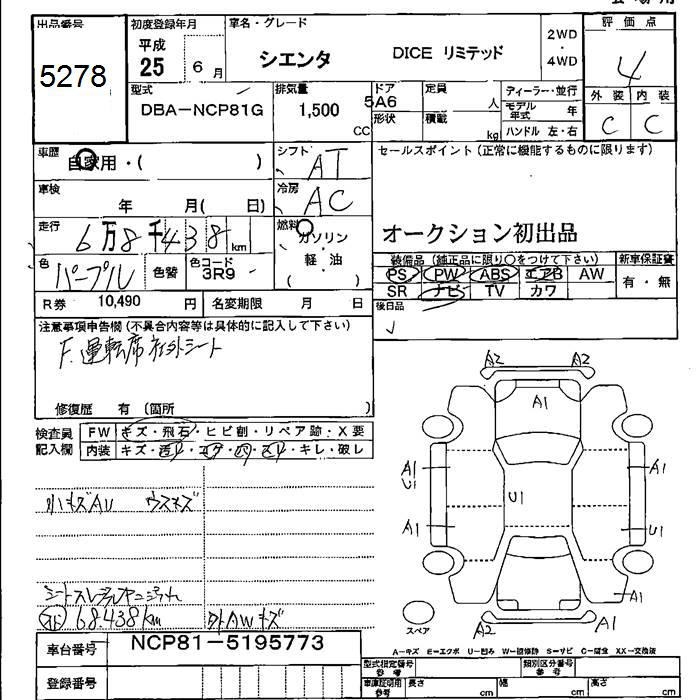 出品番号
5278
初度登録年月
平成
25 6 月
車名・グレード
シエンタ DICE リミテッド
2WD
・
4WD
評価点
4
外装 内装
C C
型式
DBA-NCP81G
排気量
1,500
CC
ドア
5A6
形状
定員
人
積載
kg
ディーラー・並行
モデル年式 年
ハンドル 左・右
車歴
自家用・( )
シフト
AT
セールスポイント(正常に機能するものに限ります)
オークション初出品
車検
年 月( 日)
冷房
AC
走行
6万8千438 km
燃料
ガソリン
・
軽・油
( )
色
パープル
色替
色コード
3R9
装備品(純正品に限り○をつけて下さい)
PS PW ABS エアB AW
SR ナビ TV カワ
新車保証書
有・無
R券 10,490 円
名変期限 月 日
後日品
注意事項申告欄(不具合内容等は具体的に記入して下さい)
F.運転席社外シート
修復歴 有(箇所 )
検査員
記入欄
FW キズ・飛石・ヒビ割・リペア跡・X要
内装 キズ・汚レ・コゲ・穴・スレ・キレ・破レ
小キズAU ウスキズ
68.438km
外AWキズ
車台番号 NCP81-5195773
登録番号
A2 A2
A1
A1
U1
A1
A1
U1
U1
A1
A2
A1
スペア
A-キズ E-エクボ U-凹み W-補修跡 S-サビ C-腐食 XX-交換済
型式指定番号
参考
類別区分番号
参考
車庫証明用
参考
長さ cm 幅 cm 高さ cm